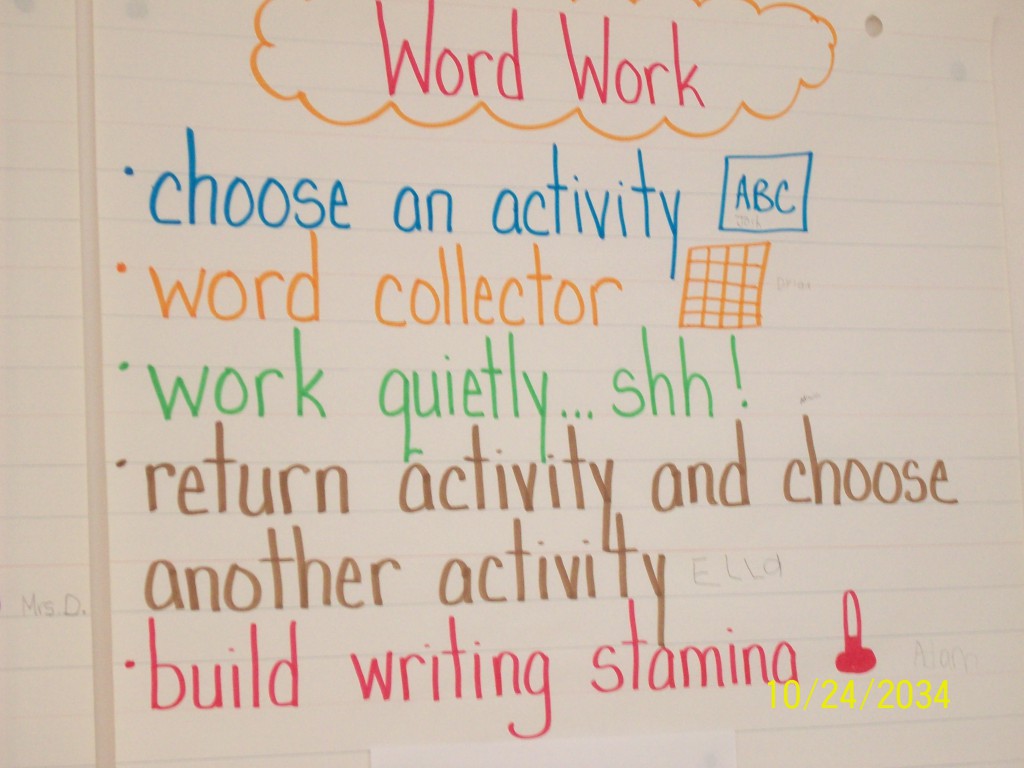 Word Work
• choose an activity ABC
• word collector
• work quietly... shh!
• return activity and choose
another activity ELLa
Mrs. D.
• build writing stamina
10/24/2034